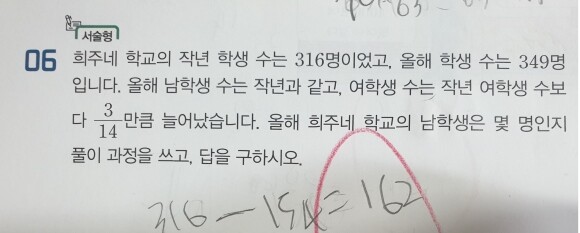 서술형
06 희주네 학교의 작년 학생 수는 316명이었고, 올해 학생 수는 349명
입니다. 올해 남학생 수는 작년과 같고, 여학생 수는 작년 여학생 수보
다 3/14만큼 늘어났습니다. 올해 희주네 학교의 남학생은 몇 명인지
풀이 과정을 쓰고, 답을 구하시오.
316 - 154 = 162